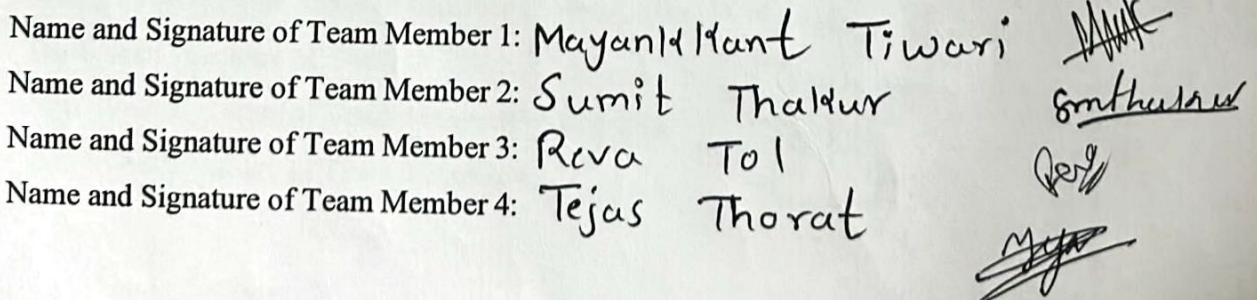 Name and Signature of Team Member 1: Mayank Kant Tiwari
Name and Signature of Team Member 2: Sumit Thakur
Name and Signature of Team Member 3: Reva Tol
Name and Signature of Team Member 4: Tejas Thorat